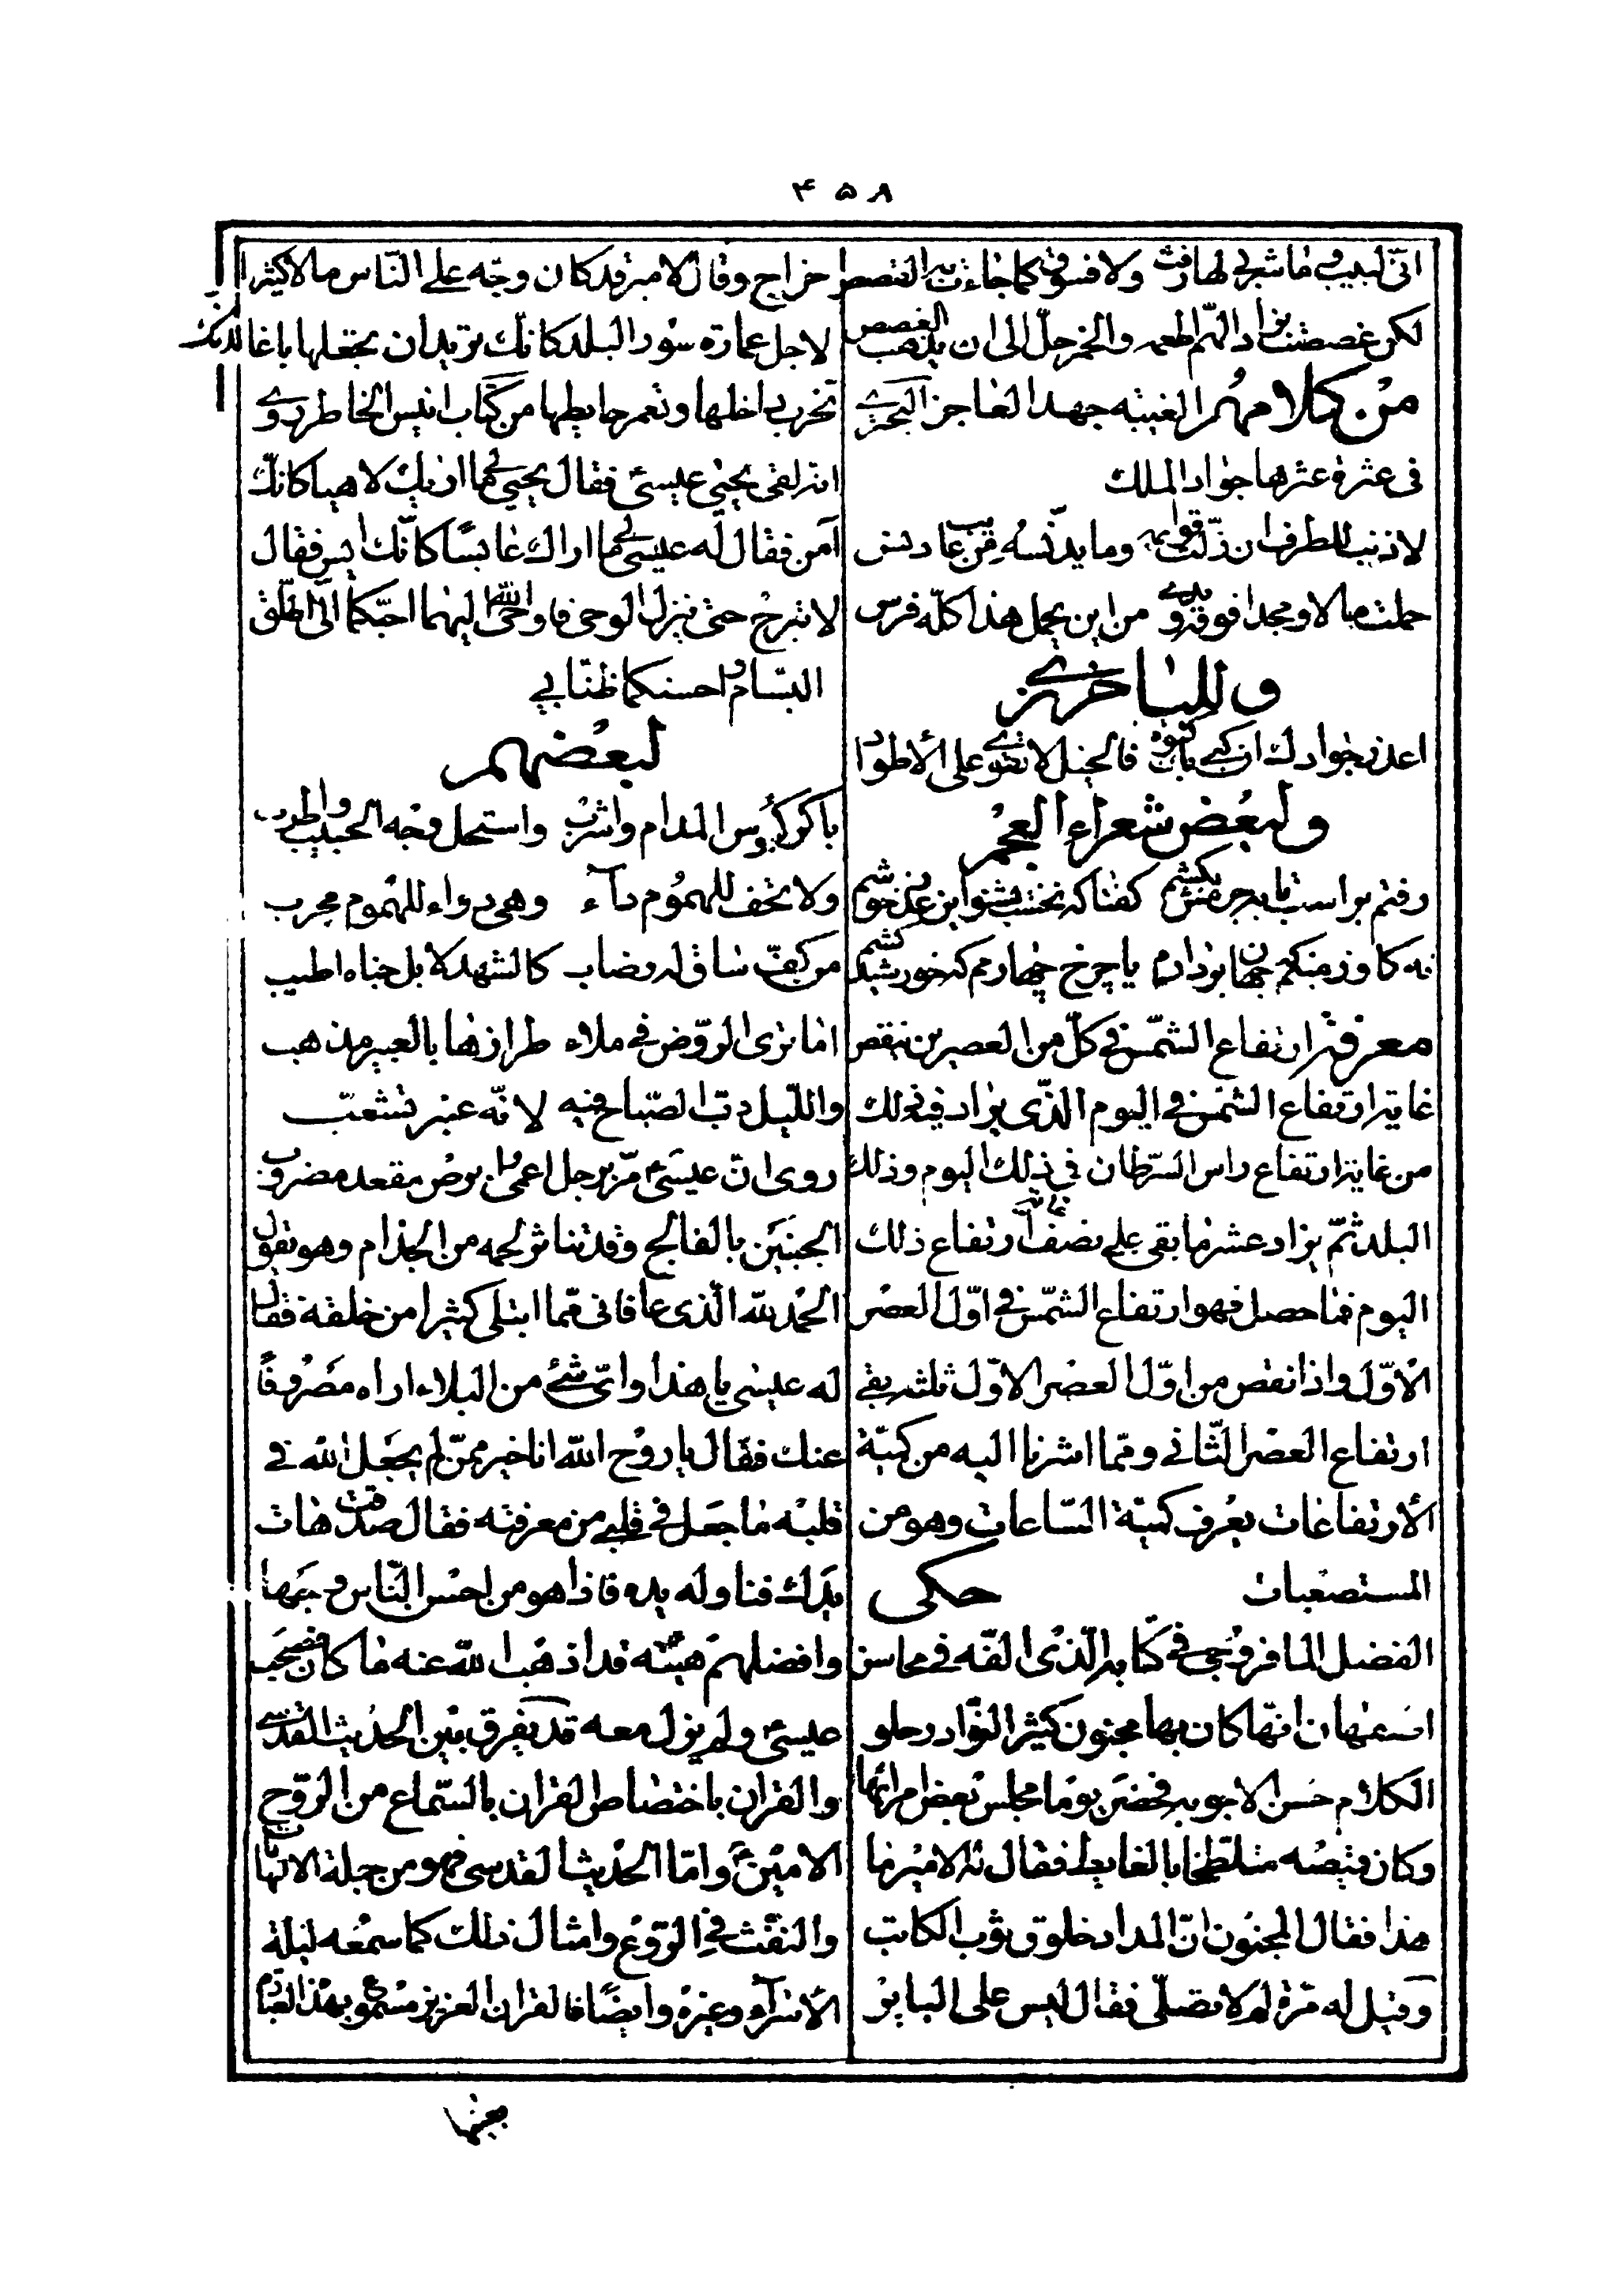 ۴۵۸
انّى لبيب وما شعرى لها رفث ولا فسوق كما جاءت به القصص
لكن غصصت بزاد الهمّ اطعمه والخمر حلّ الى ان يذهب الغصص
من كلامهم الغيبه جهد العاجز البحترى
فى عثرة عثرها جواد الملك
لا ذنب للطرف ان زلّت قوايمه وما يدنّسه من عايب دنس
حملت ما لا ومجدا فوقه وندى من اين يحمل هذا كلّه فرس
وللباخرزى
اعذر جوادك ان كبى بك كبوة فالخيل لا تقوى على الأطواد
ولبعض شعراء العجم
رفتم بر اسب تا بجرمش بكشم كفتا كه نخست بشنو اين عذر خوشم
نه كاو زمينم كه جهان بردارم يا چرخ چهارم كه خورشيد كشم
معرفة ارتفاع الشمس فى كلّ من العصرين تنقص
غاية ارتفاع الشمس فى اليوم الذى يراد فيه ذلك
من غاية ارتفاع راس السرطان فى ذلك اليوم وذلك
البلد ثمّ يزاد عشر ما بقى على نصف غاية ارتفاع ذلك
اليوم فما حصل فهو ارتفاع الشمس فى اوّل العصر
الاوّل واذا نقص من اوّل العصر الاوّل ثلثه بقى
ارتفاع العصر الثانى وممّا اشرنا اليه من كميّة
الأرتفاعات يعرف كميّة الساعات وهو من
المستصعبات حكى
الفضل المافروخى فى كتابه الّذى الفّه فى محاسن
اصفهان انّها كان بها مجنون كثير النوادر حلو
الكلام حسن الاجوبه فحضر يوما مجلس بعض امرائها
وكان قميصه متلطخا بالغايط فقال له الامير ما
هذا فقال المجنون انّ المداد خلوق ثوب الكاتب
وقيل له مرّة لم لا تصلّى فقال ليس على الباير
خراج وقال لامير قد كان وجّه على النّاس مالا كثيرا
لاجل عمارة سور البلد كانّك تريد ان تجعلها باغا لانّك
تخرب داخلها وتعمر حايطها من كتاب انيس الخاطر روى
انه لقى يحيى عيسى فقال يحيى لم ما اراك لاهيا كانّك
آمن فقال له عيسى لم ما اراك عابسًا كانّك ايس فقال
لا نبرح حتى ينزل الوحى فاوحى الله اليهما احبّكما الىّ الطلق
البسّام واحسنكما ظنّا بى
لبعضهم
باكر كؤس المدام واشرب واستحل وجه الحبيب واطرب
ولا تخف للهموم داء وهى دواء للهموم مجرب
من كفّ ساق له رضاب كالشهد لا بل جناه اطيب
اما ترى الروّض فى ملاء طرازها بالعبير مذهب
والليل دبّ الصّباح فيه لانّه عنبر تشعّب
روى انّ عيسى ع مرّ برجل اعمى ابرص مقعد مضروب
الجنبين بالفالج وقد تناثر لحمه من الجذام وهو يقول
الحمد لله الّذى عافانى ممّا ابتلى كثيرا من خلقه فقال
له عيسى يا هذا واىّ شئ من البلاء اراه مصروفًا
عنك فقال يا روح الله انا خير ممّن لم يجعل الله فى
قلبه ما جعل فى قلبى من معرفته فقال صدقت هات
يدك فناوله يده فاذا هو من احسن النّاس وجهًا
وافضلهم هيئة قد اذهب الله عنه ما كان فصحب
عيسى ع ولم يزل معه قد يفرق بين الحديث القدسى
والقران باختصاص القران بالسّماع من الروّح
الامين ع وامّا الحديث القدسى فهو من جملة الالهامات
والنفّث فى الرّوع وامثال ذلك كما سمعه ليلة
الأسراء وغيره وايضًا فالقران العزيز مسموع بهذه العبارة
بعينها